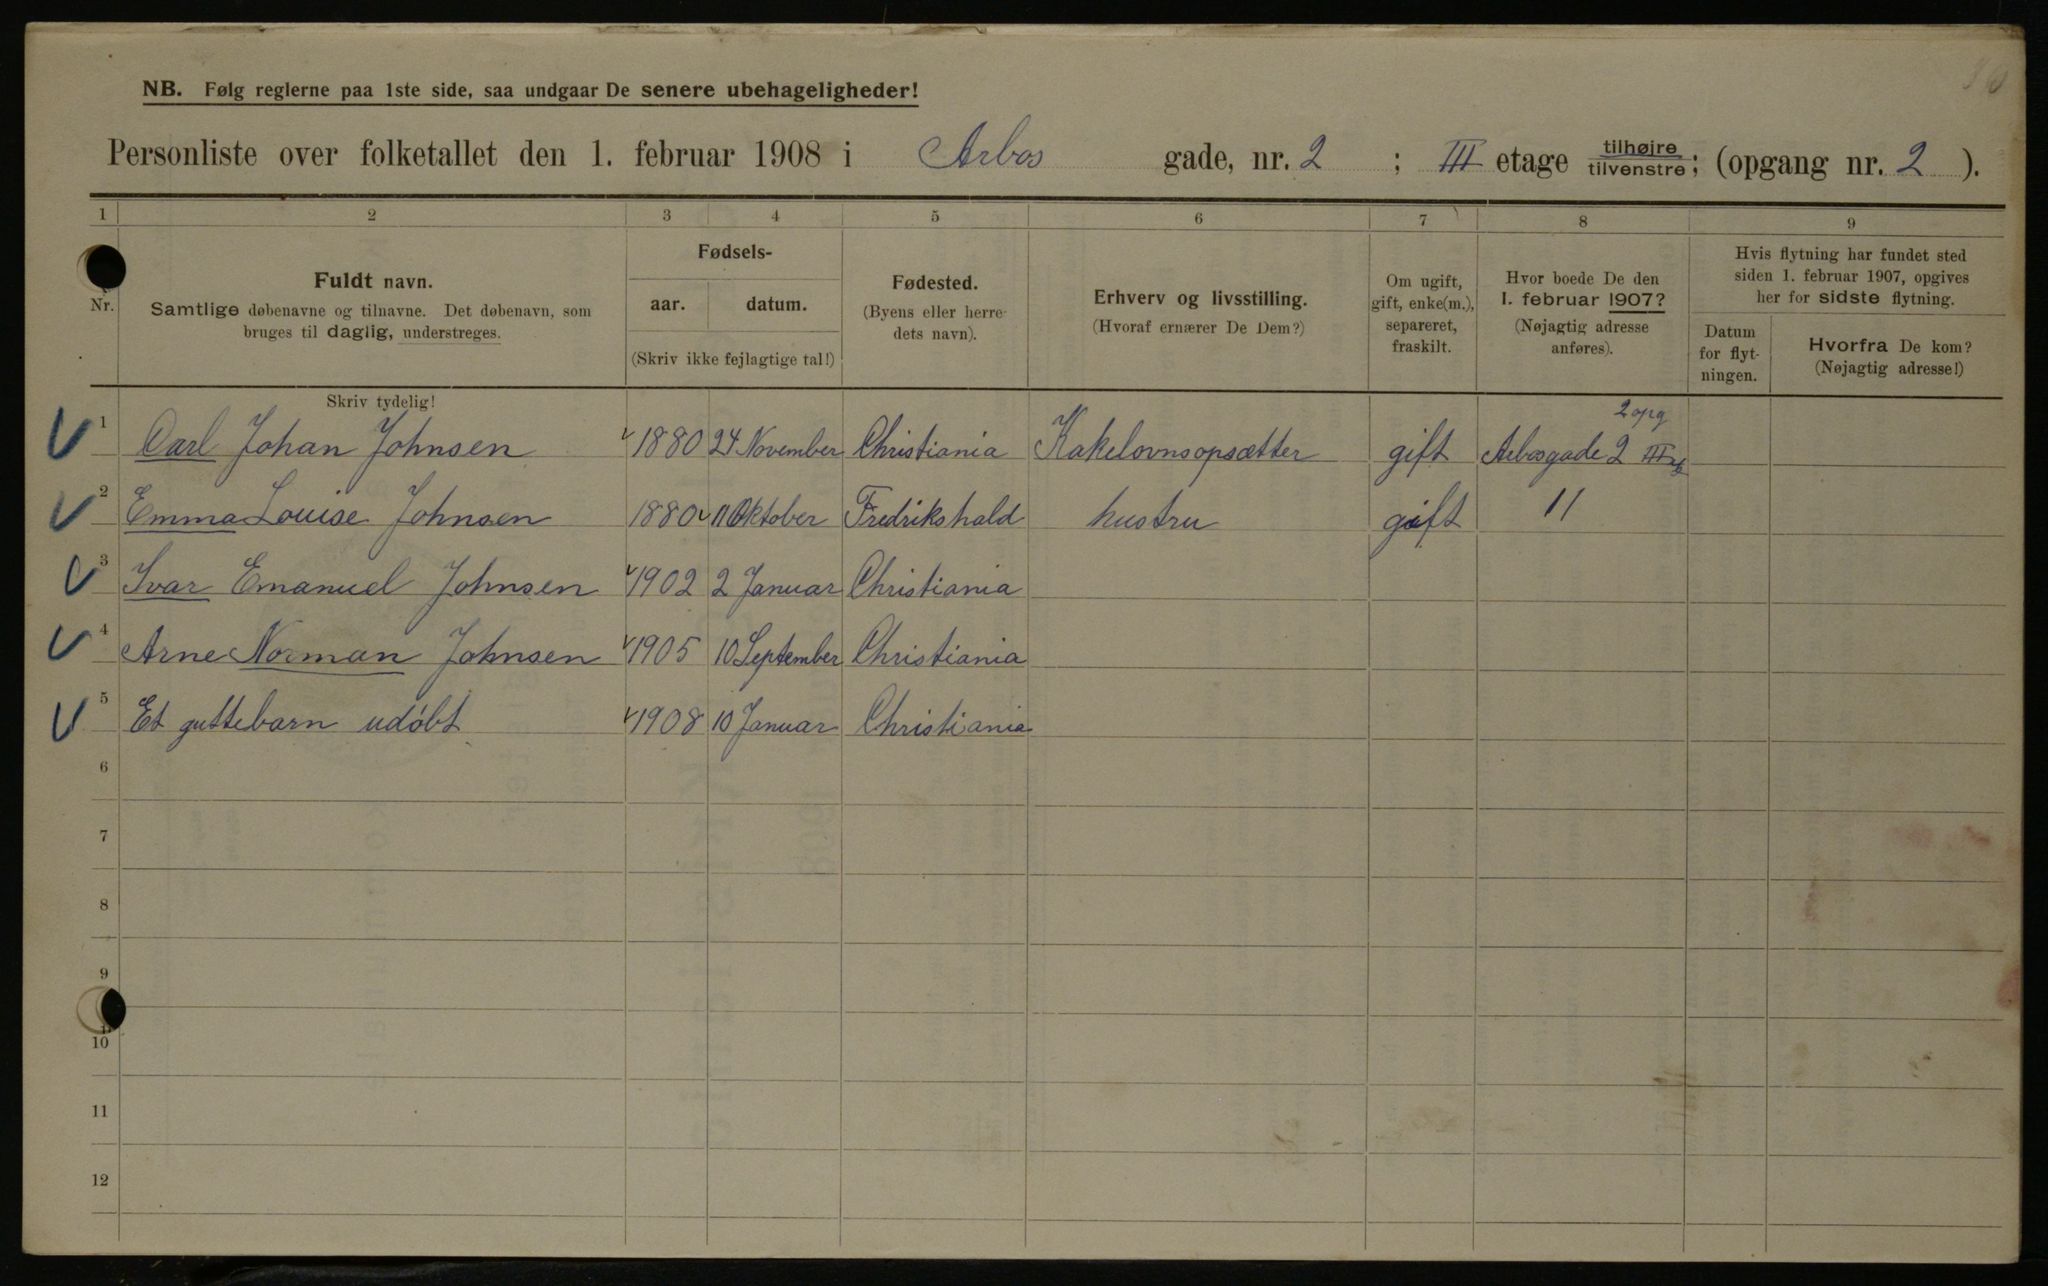 NB. Følg reglerne paa 1ste side, saa undgaar De senere ubehageligheder!
Personliste over folketallet den 1. februar 1908 i Arbos gade, nr. 2 ; III etage tilhøjre tilvenstre; (opgang nr. 2 ).
1 2 3 4 5 6 7 8 9
Nr.
Fuldt navn.
Samtlige døbenavne og tilnavne. Det døbenavn, som
bruges til daglig, understreges.
Fødsels-
aar. datum.
(Skriv ikke fejlagtige tal!)
Fødested.
(Byens eller herre-
dets navn).
Erhverv og livsstilling.
(Hvoraf ernærer De Dem?)
Om ugift,
gift, enke(m.),
separeret,
fraskilt.
Hvor boede De den
1. februar 1907?
(Nøjagtig adresse
anføres).
Hvis flytning har fundet sted
siden 1. februar 1907, opgives
her for sidste flytning.
Datum
for flyt-
ningen.
Hvorfra De kom?
(Nøjagtig adresse!)
Skriv tydelig!
2 opg
1 Carl Johan Johnsen 1880 24 November Christiania Kakelovnsopsætter gift Arbosgade 2 III
2 Emma Louise Johnsen 1880 11 Oktober Fredrikshald hustru gift 11
3 Ivar Emanuel Johnsen 1902 2 Januar Christiania
4 Arne Norman Johnsen 1905 10 September Christiania
5 Et guttebarn udøbt 1908 10 Januar Christiania
6
7
8
9
10
11
12